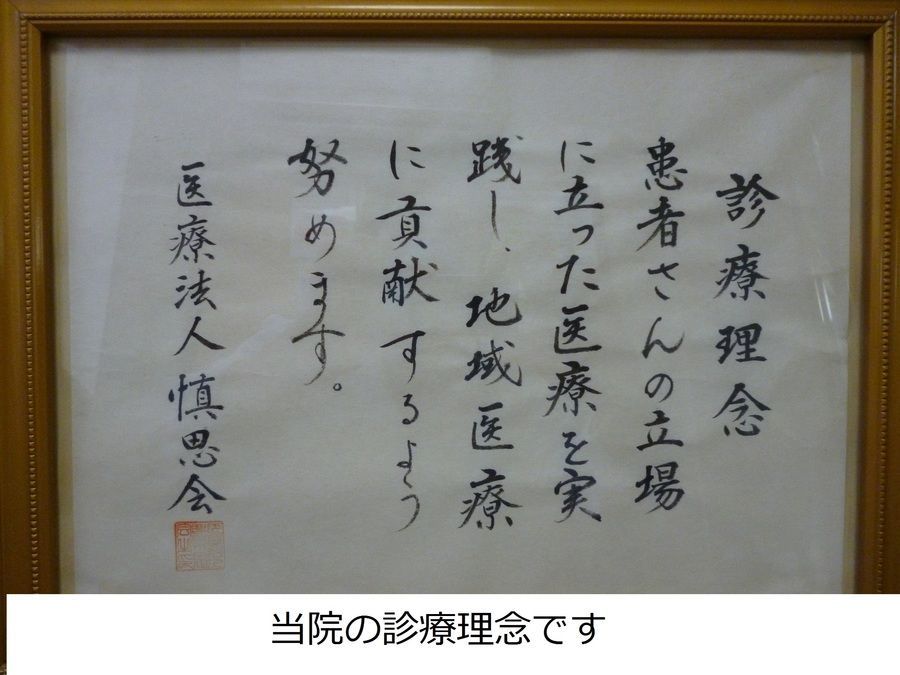 診療理念
患者さんの立場
に立った医療を実
践し、地域医療
に貢献するよう
努めます。
医療法人 慎思会
当院の診療理念です